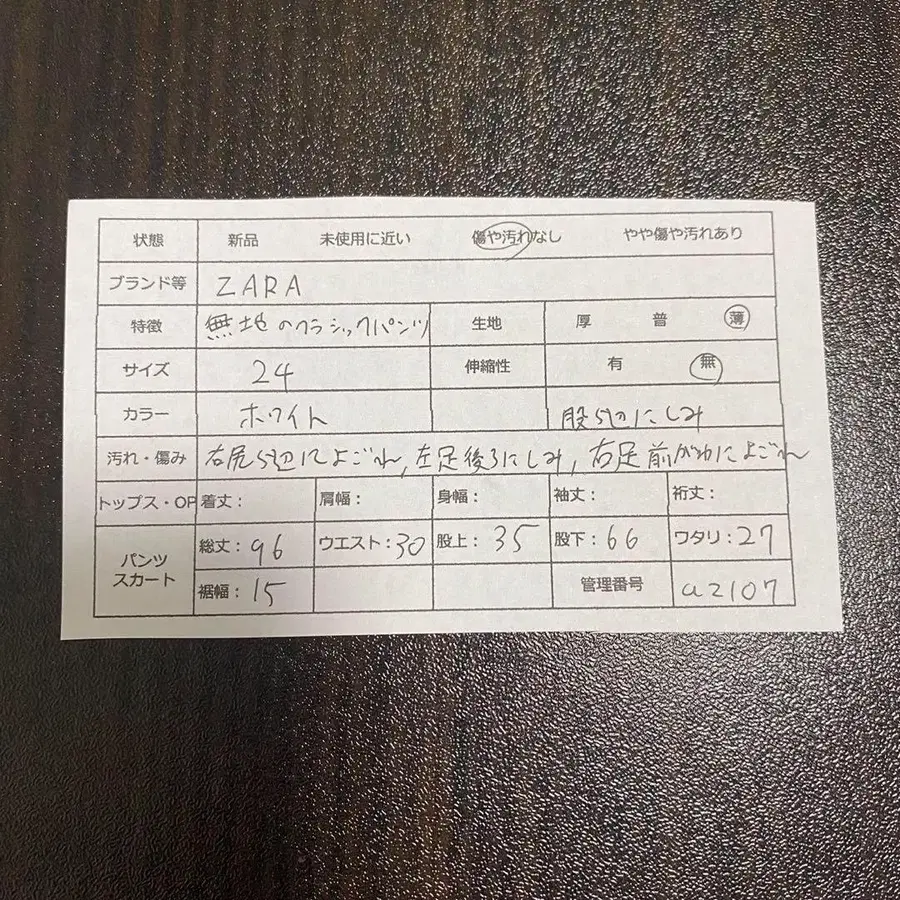 状態 新品 未使用に近い 傷や汚れなし やや傷や汚れあり
ブランド等 ZARA
特徴 無地のクラシックパンツ 生地 厚 普 薄
サイズ 24 伸縮性 有 無
カラー ホワイト 股らへんにしみ
汚れ・傷み 右尻らへんによごれ,左足後ろにしみ,右足前がわによごれ
トップス・OP 着丈: 肩幅: 身幅: 袖丈: 裄丈:
パンツ スカート 総丈:96 ウエスト:30 股上:35 股下:66 ワタリ:27
裾幅:15 管理番号 a2107